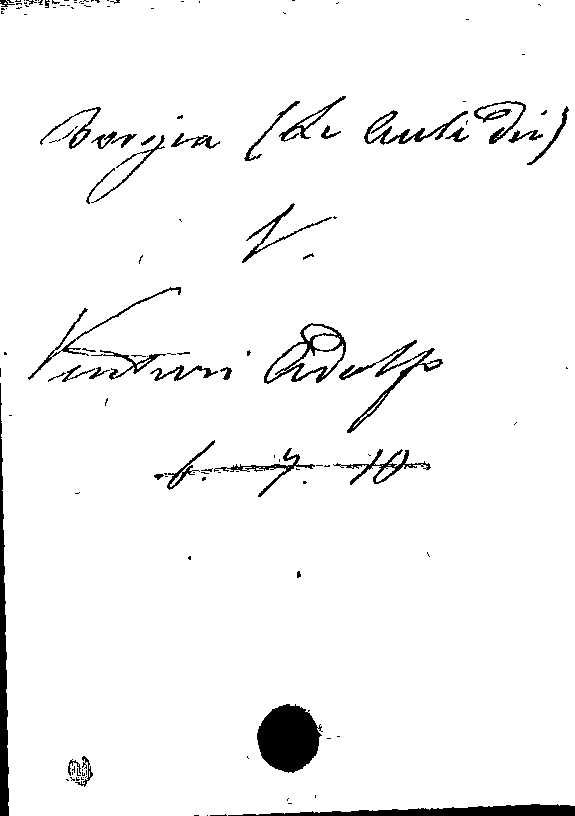 Borgia (Le Arti dei)
V.
Venturi Adolfo
6. 7. 10